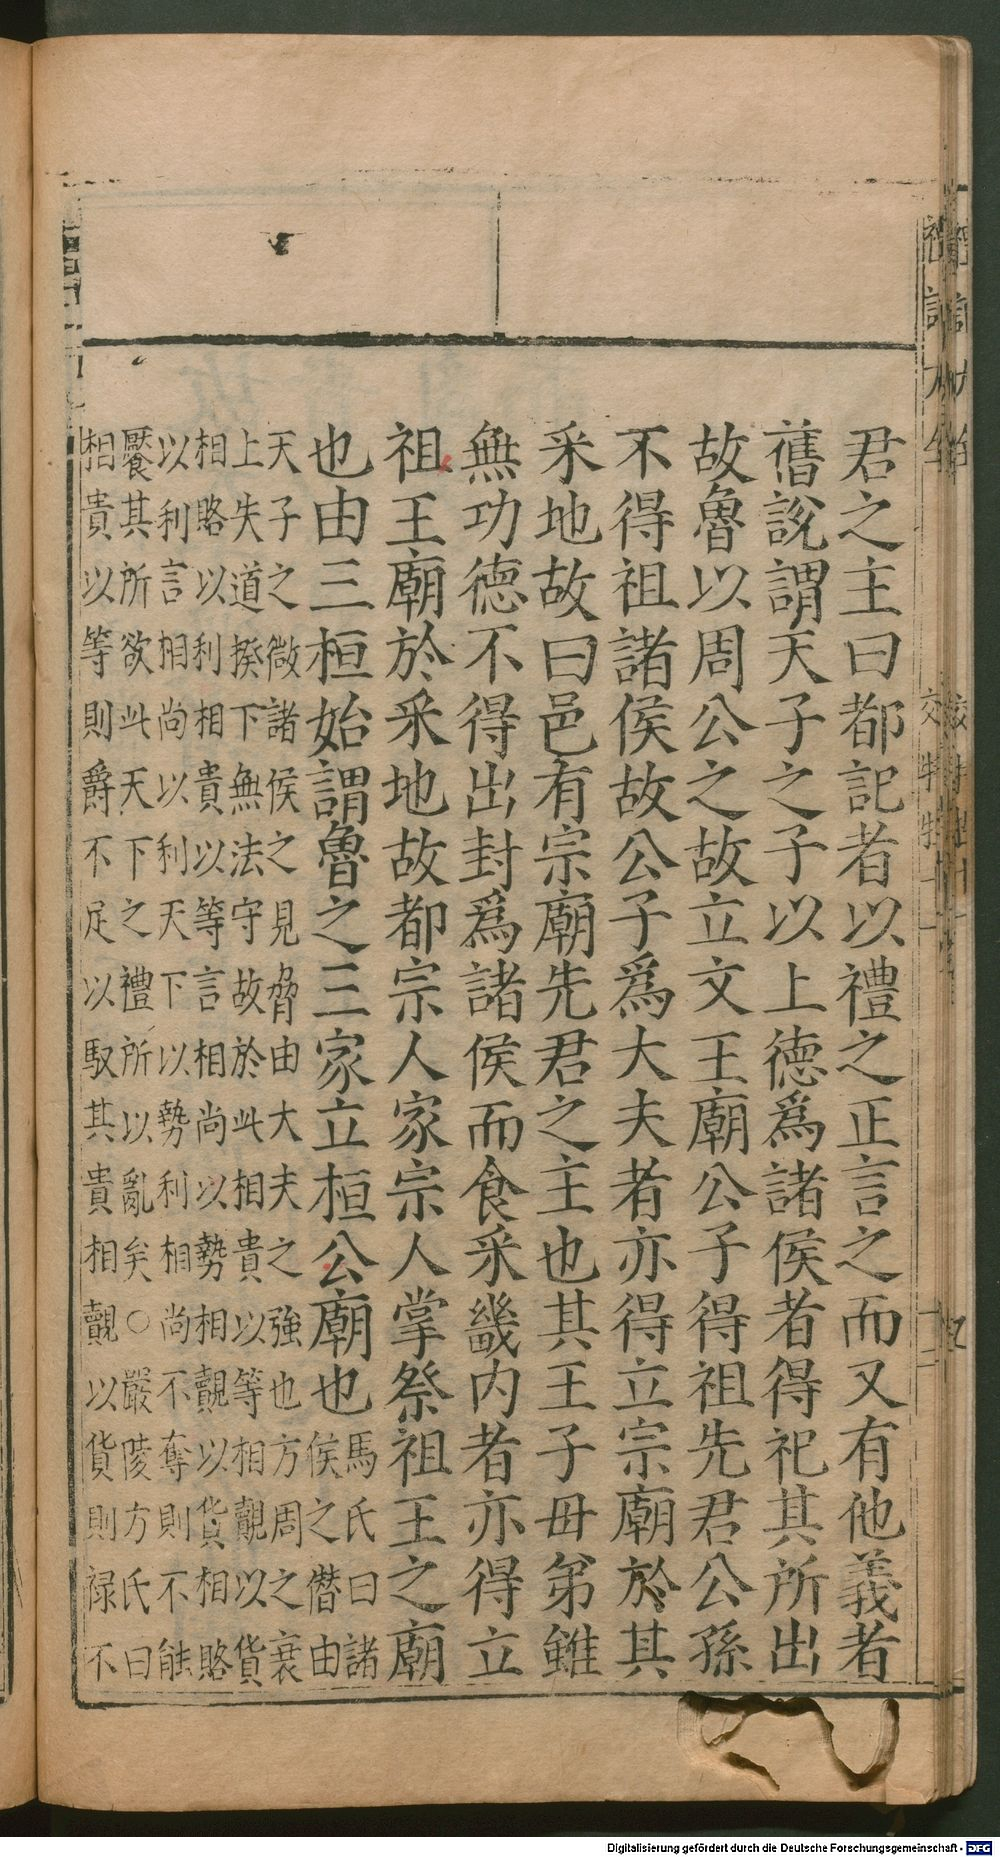 君之主曰都記者以禮之正言之而又有他義者
舊說謂天子之子以上德爲諸侯者得祀其所出
故魯以周公之故立文王廟公子得祖先君公孫
不得祖諸侯故公子爲大夫者亦得立宗廟於其
采地故曰邑有宗廟先君之主也其王子母弟雖
無功德不得出封爲諸侯而食采畿內者亦得立
祖王廟於采地故都宗人家宗人掌祭祖王之廟
也由三桓始謂魯之三家立桓公廟也
馬氏曰諸
侯之僭由
天子之微諸侯之見脅由大夫之強也方周之衰
上失道揆下無法守故於此相貴以等相覿以貨
相賂以利相貴以等言相尚以勢相覿以貨相賂
以利言相尚以利天下以勢利相尚不奪則不能
饜其所欲此天下之禮所以亂矣○嚴陵方氏曰
相貴以等則爵不足以馭其貴相覿以貨則祿不
Digitalisierung gefördert durch die Deutsche Forschungsgemeinschaft - DFG